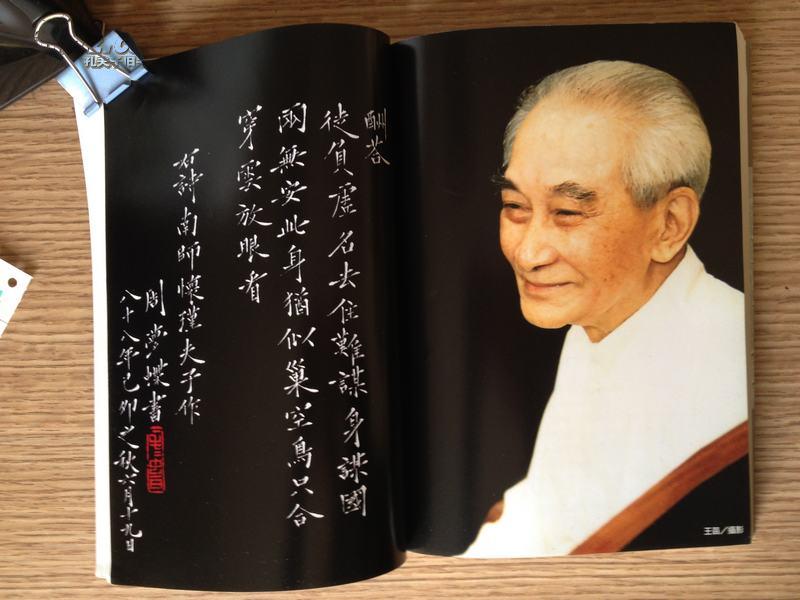 酬荅
徒負虛名去住難謀身謀國
兩無安此身猶似巢空鳥只合
穿雲放眼看
右詩南師懷瑾夫子作
周夢蝶書
八十八年己卯之秋六月十九日
王苗／攝影